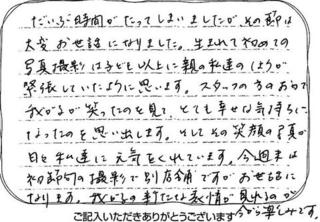 だいぶ時間がたってしまいましたが、その節は
大変お世話になりました。生まれて初めての
写真撮影は子ども以上に親の私達のほうが
緊張していたように思います。スタッフの方のおかげで
我が子が笑ったのを見て、とても幸せな気持ちに
なったのを思い出します。そしてその笑顔の写真が
日々私達に元気をくれています。今週末は
初節句の撮影で別店舗ですがお世話に
なります。我が子の新たな表情が見れるのが
今から楽しみです。
ご記入いただきありがとうございます